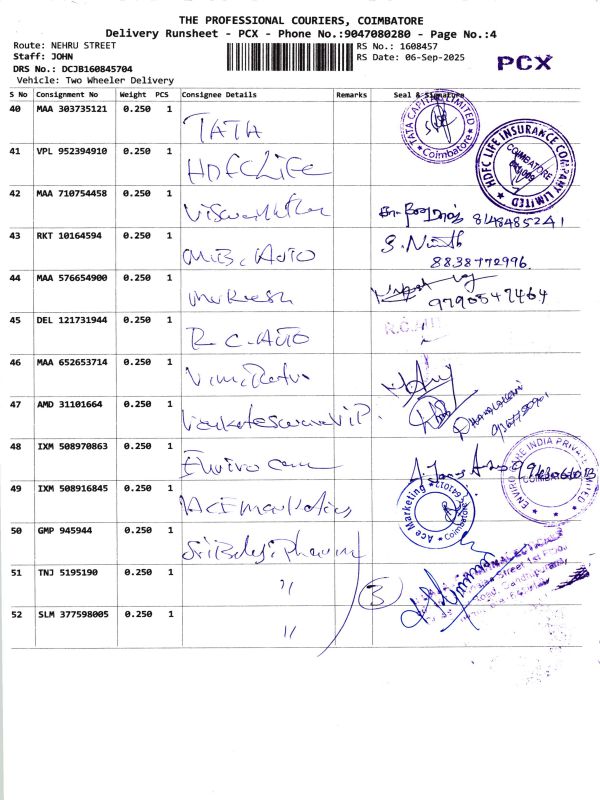 THE PROFESSIONAL COURIERS, COIMBATORE
Delivery Runsheet - PCX - Phone No.:9047080280 - Page No.:4
Route: NEHRU STREET
RS No.: 1608457
Staff: JOHN
RS Date: 06-Sep-2025
PCX
DRS No.: DCJB160845704
Vehicle: Two Wheeler Delivery
S No Consignment No Weight PCS Consignee Details Remarks Seal & Signature
40 MAA 303735121 0.250 1 TATA
TATA CAPITAL LIMITED
Coimbatore
41 VPL 952394910 0.250 1 HDFC LIFE
HDFC LIFE INSURANCE COMPANY LIMITED
COIMBATORE
42 MAA 710754458 0.250 1
8148485241
43 RKT 10164594 0.250 1 M.B. AUTO
8838772996
44 MAA 576654900 0.250 1 Mukesh
9790547464
45 DEL 121731944 0.250 1 R.C. AUTO
R.C.
46 MAA 652653714 0.250 1
47 AMD 31101664 0.250 1 Venkateswara V.P.
DHANALAKSHMI
48 IXM 508970863 0.250 1 Enviro Care
ENVIRO CARE INDIA PRIVATE LIMITED
49 IXM 508916845 0.250 1 ACE Marketing
Ace Marketing
Coimbatore
641012
50 GMP 945944 0.250 1 Sri Balaji Pharma
51 TNJ 5195190 0.250 1 "
3
52 SLM 377598005 0.250 1 "